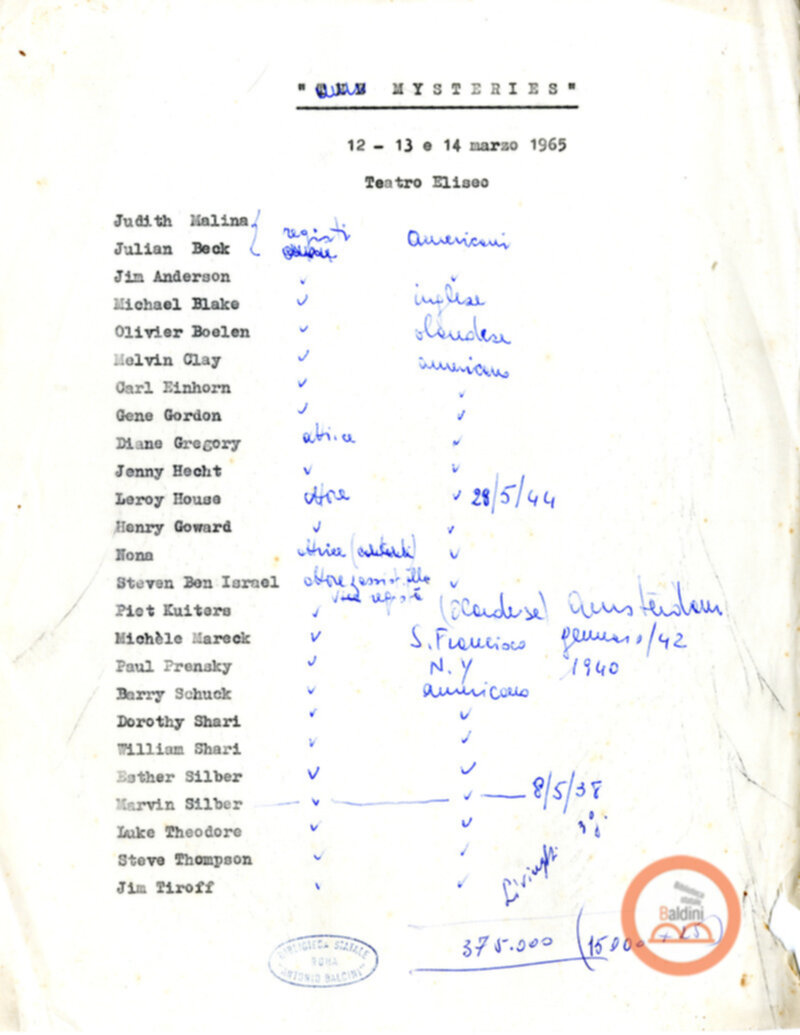 "THE MYSTERIES"
12 - 13 e 14 marzo 1965
Teatro Eliseo
Judith Malina
registi americani
Julian Beck
Jim Anderson ✓ ✓
Michael Blake ✓ inglese
Olivier Boelen ✓ olandese
Melvin Clay ✓ americano
Carl Einhorn ✓ ✓
Gene Gordon ✓ ✓
Diane Gregory attrice ✓
Jenny Hecht ✓ ✓
Leroy House attore ✓ 28/5/44
Henry Goward ✓ ✓
Nona attrice ✓
Steven Ben Israel attore ✓
regista
Piet Kuiters ✓ (olandese) Amsterdam
Michèle Mareck ✓ S. Francisco gennaio/42
Paul Prensky ✓ N.Y 1940
Barry Schuck ✓ americano
Dorothy Shari ✓ ✓
William Shari ✓ ✓
Esther Silber ✓ ✓
Marvin Silber ✓ ✓ 8/5/38
Luke Theodore ✓ ✓
Steve Thompson ✓ ✓
Jim Tiroff ✓ ✓
375.000 (15000 × 25)
BIBLIOTECA STATALE
ROMA
"ANTONIO BALDINI"
Biblioteca
statale
Baldini